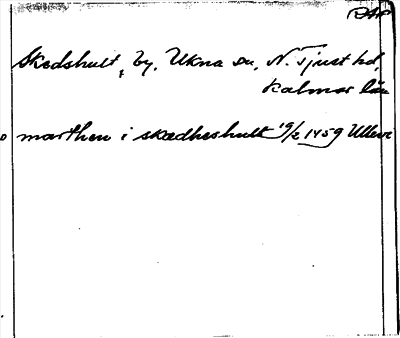 RAP
Skedshult, by, Ukna sn, N. Tjust hd,
Kalmar län
marthen i skædheshult 19/2 1459 Ullevi